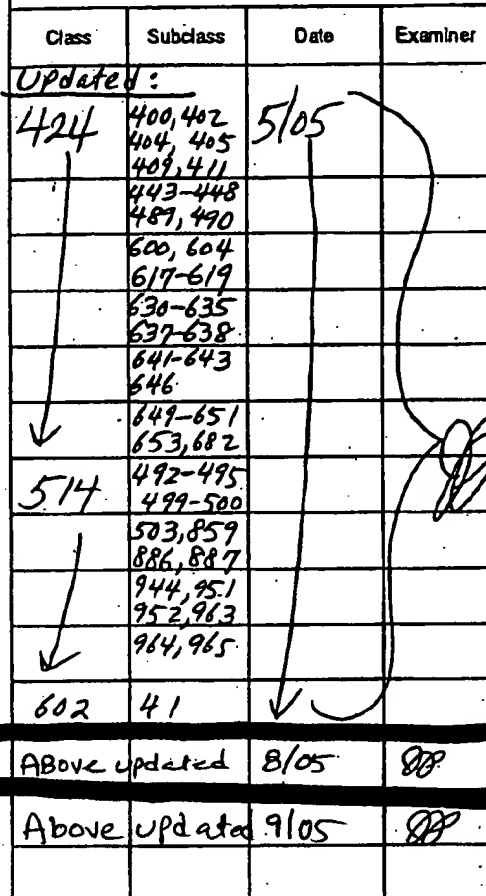 Class Subclass Date Examiner
Updated:
424 400, 402 5/05
404, 405
409, 411
443-448
489, 490
600, 604
617-619
630-635
637-638
641-643
646
649-651
653, 682
514 492-495
499-500
503, 859
886, 887
944, 951
952, 963
964, 965
602 41
ABove updated 8/05
Above updated 9/05